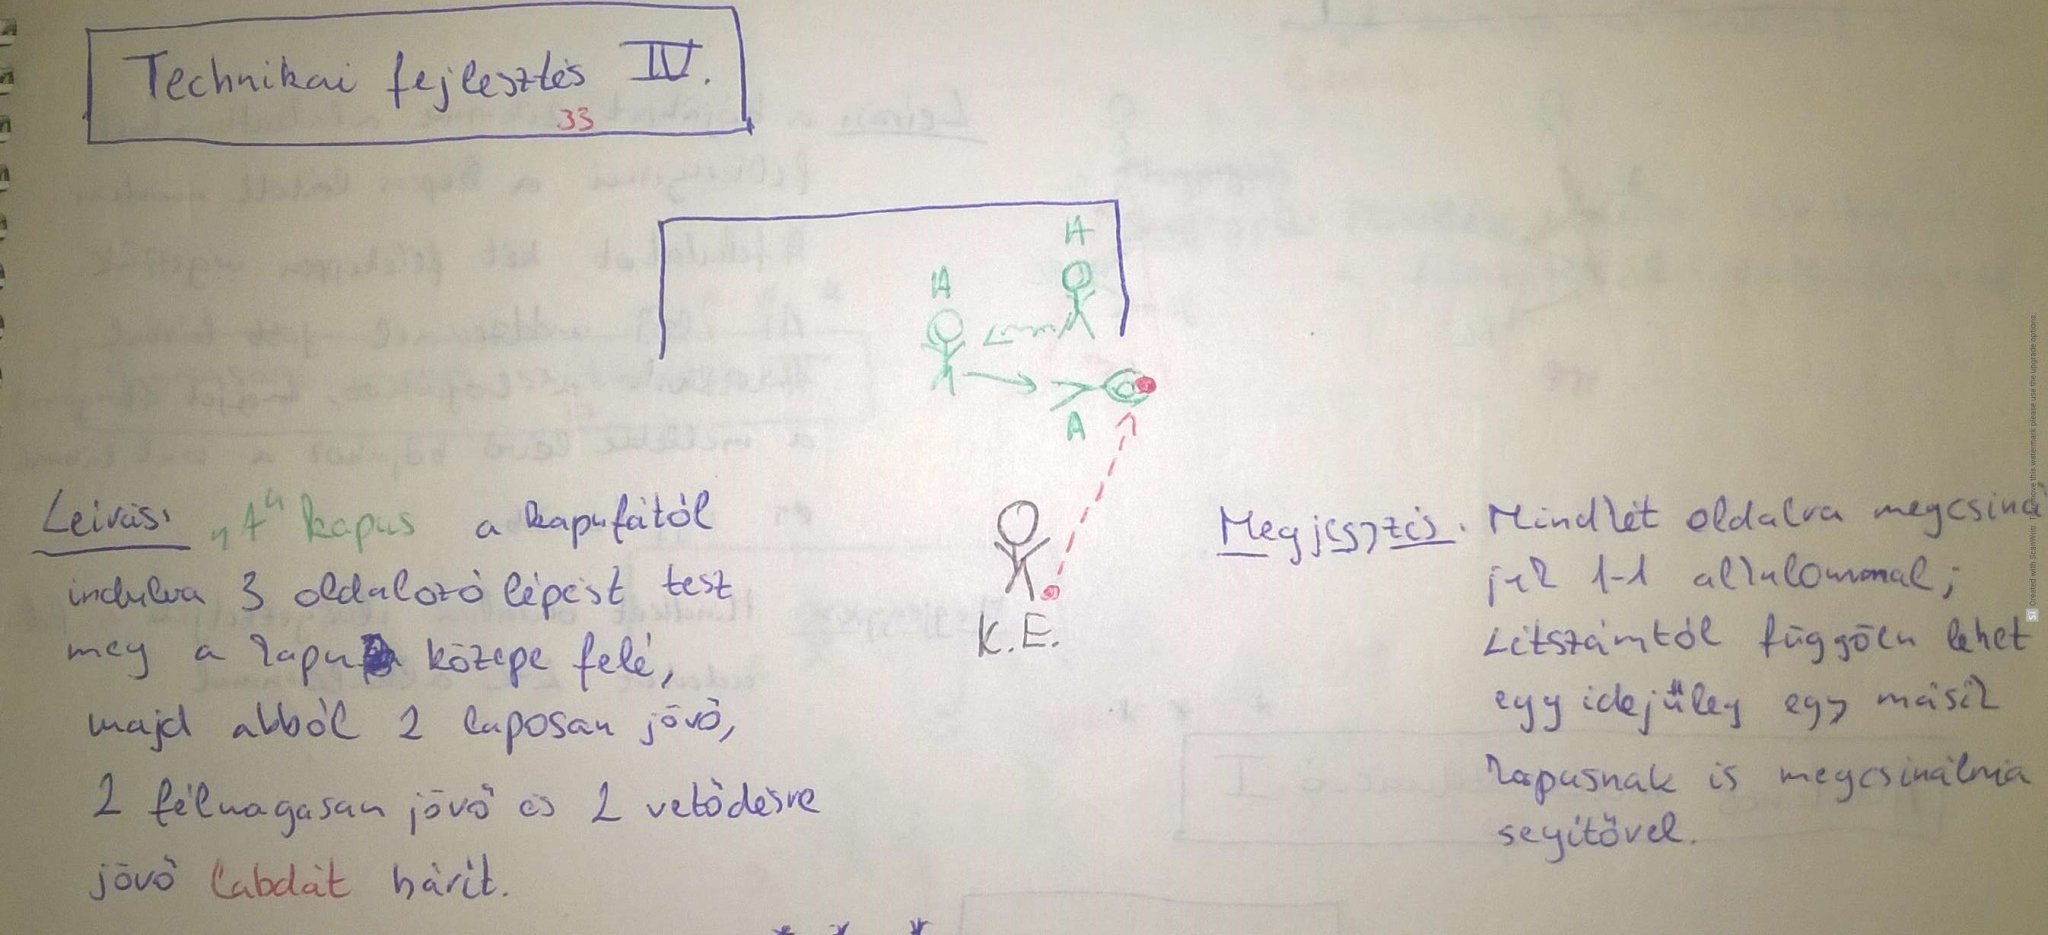 Technikai fejlesztés IV.
33
A
A
A
K.E.
Leírás: „A" kapus a kapufától
indulva 3 oldalozó lépést tesz
meg a kapu közepe felé,
majd abból 2 laposan jövő,
2 félmagasan jövő és 2 vetődésre
jövő labdát hárít.
Megjegyzés: Mindkét oldalra megcsinál
juk 1-1 alkalommal;
Létszámtól függően lehet
egy idejűleg egy másik
kapusnak is megcsinálnia
segítővel.
* * *